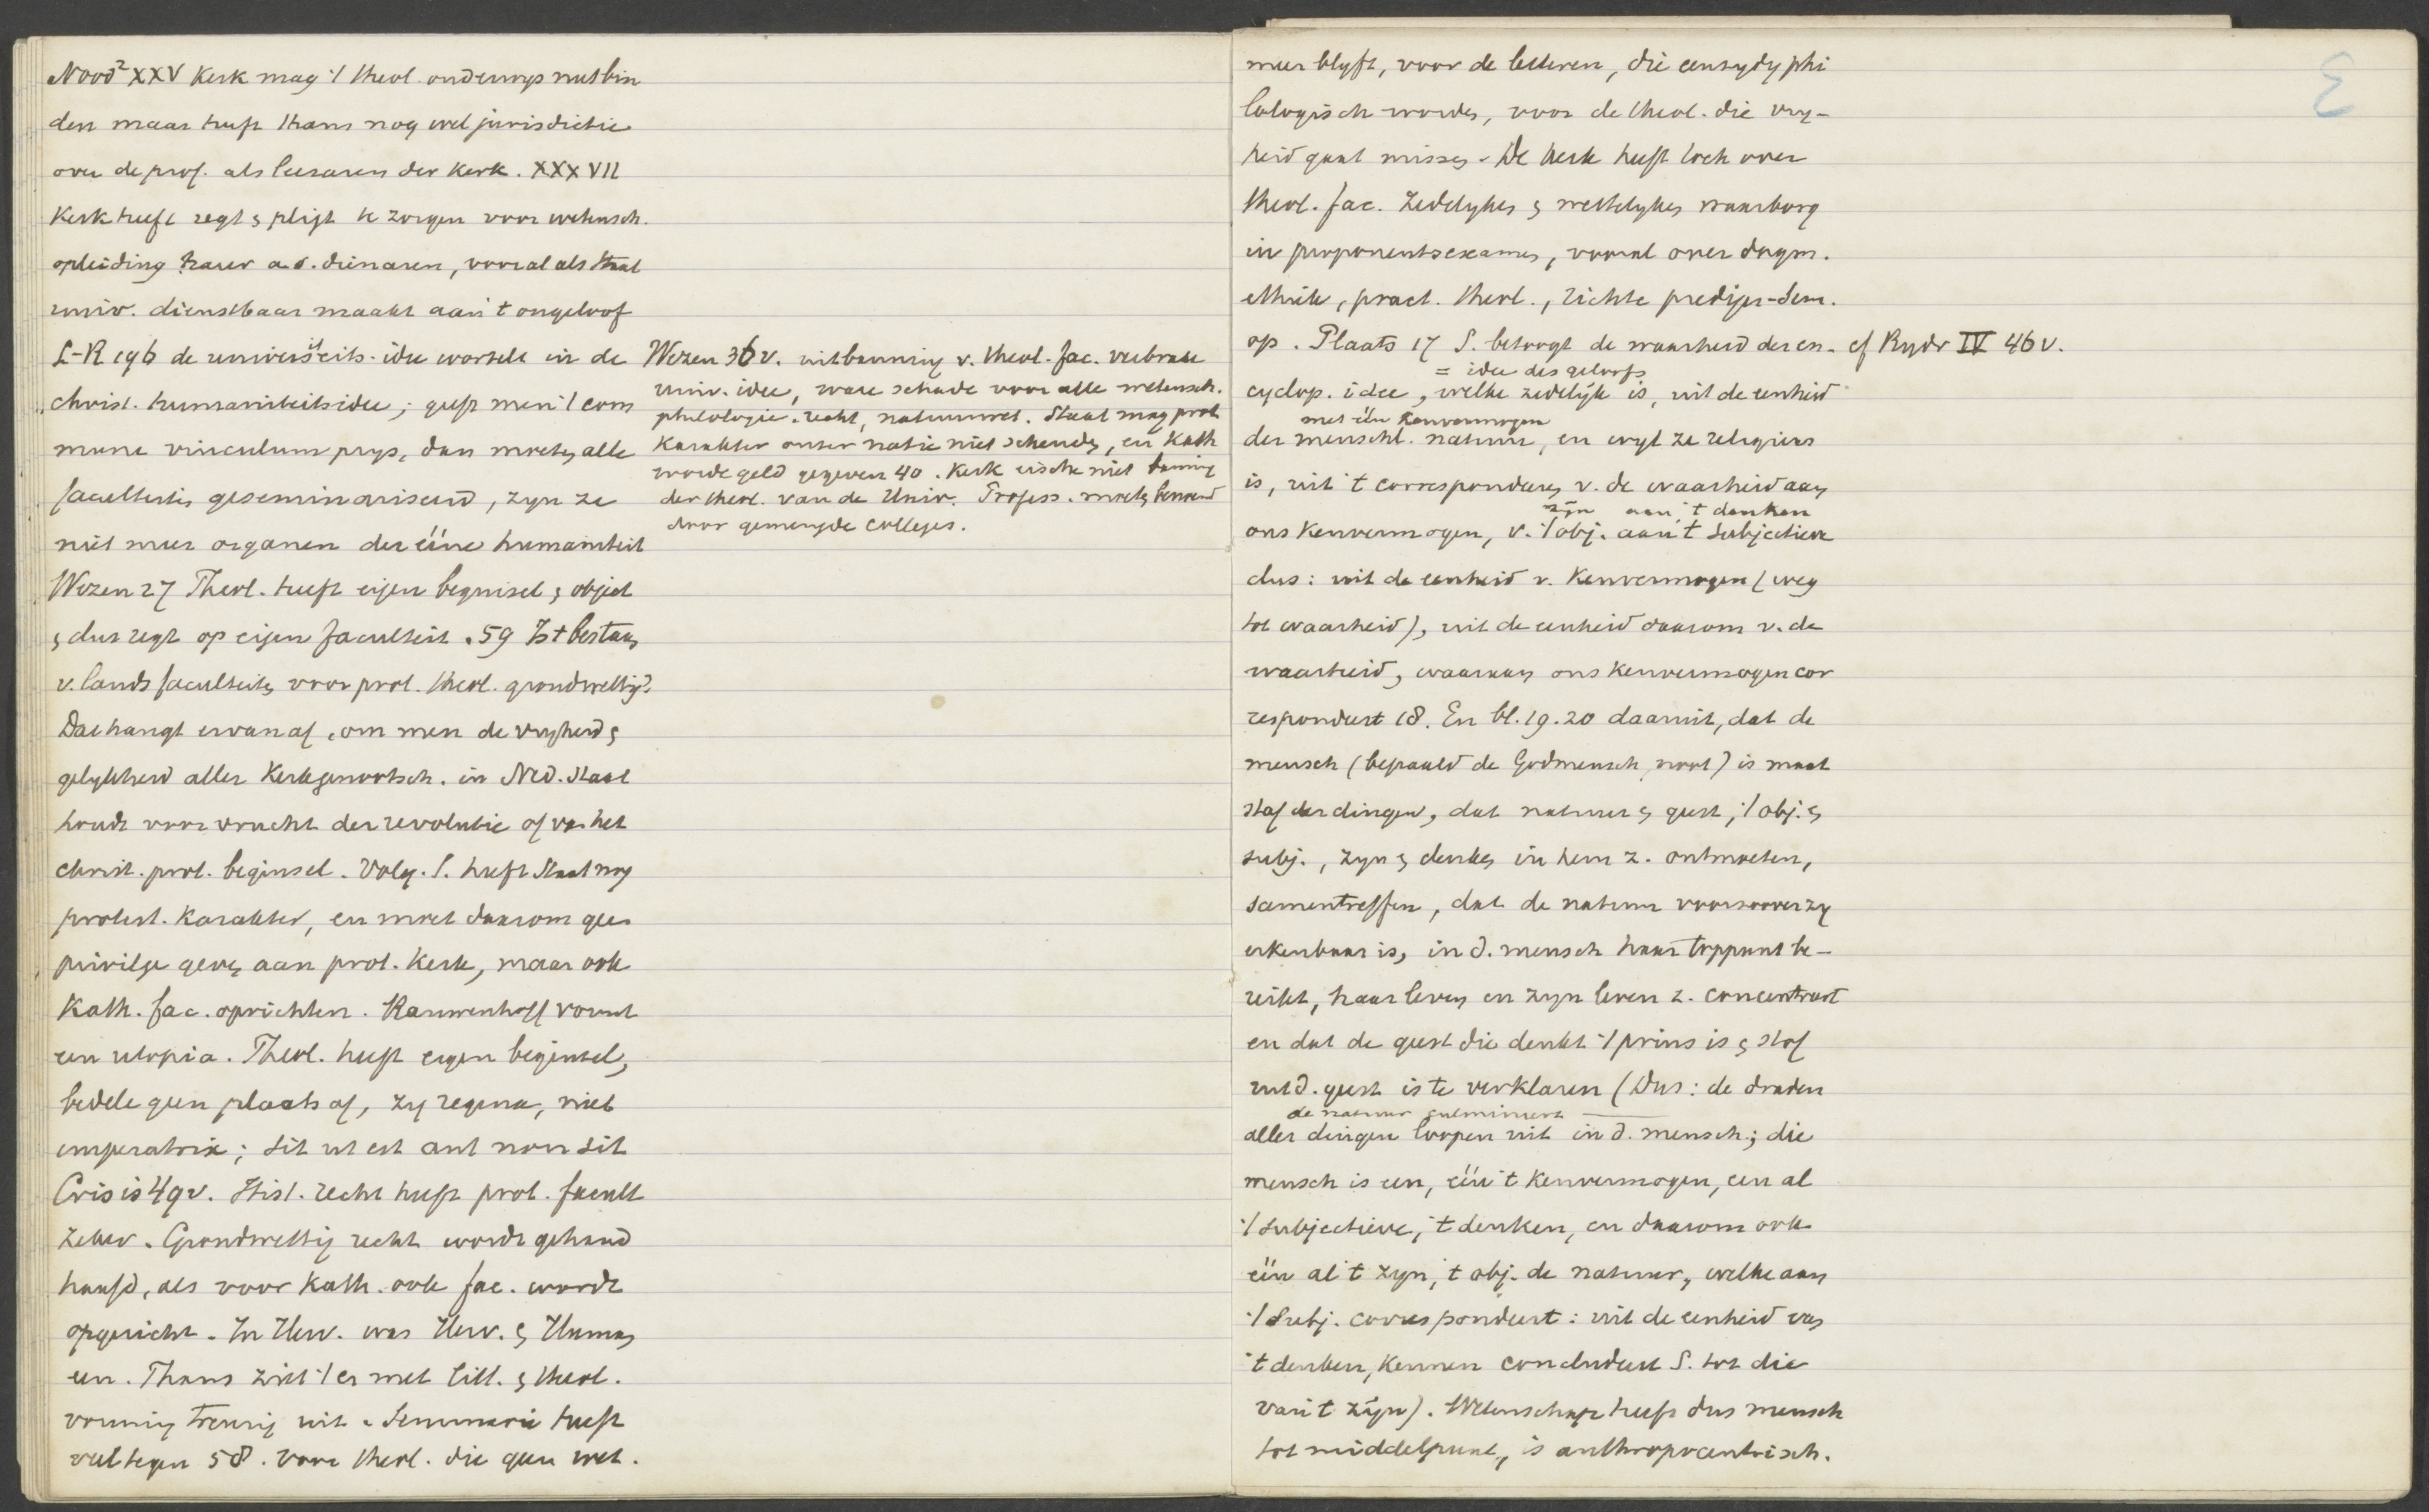 Nood² XXV Kerk mag 't theol. onderwys niet bin
den maar heeft thans nog wel jurisdictie
over de prof. als leeraren der Kerk. XXXVII
Kerk heeft regt & pligt te zorgen voor wetensch.
opleiding harer a.s. dienaren, vooral als Staat
univ. dienstbaar maakt aan 't ongeloof
L-R 196 de universiteits-idee wortelt in de
christ. humaniteitsidee; geeft men 't com
mune vinculum prys, dan moeten alle
faculteiten geseminariseerd, zyn ze
niet meer organen der ééne humaniteit
Wezen 27 Theol. heeft eigen beginsel & object
& dus regt op eigen faculteit. 59 Is 't bestaan
v. lands faculteiten voor prot. theol. grondwettig?
Dat hangt ervan af, om men de vryheid &
gelykheid aller Kerkgenootsch. in Ned. Staat
houdt voor vrucht der revolutie of van het
christ. prot. beginsel. Volg. S. heeft Staat nog
protest. Karakter, en moet daarom geen
privilege geven aan prot. Kerk, maar ook
Kath. fac. oprichten. Rauwenhoff vormt
een utopia. Theol. heeft eigen beginsel,
bedele geen plaats af, zy regina, niet
imperatrix; sit ut est aut non sit
Crisis 49v. Hist. recht heeft prot. facult
zeker. Grondwettig recht wordt gehand
haafd, als voor Kath. ook fac. wordt
opgericht. In Herv. was Herv. & Human
een. Thans ziet 't er met litt. & theol.
vorming treurig uit. Seminarie heeft
veel tegen 58. voor theol. die geen wet.
Wezen 36v. uitbanning v. theol. fac. verbrak
univ. idee, ware schade voor alle wetensch.
philologie, recht, natuurwet. Staat mag prot
Karakter onzer natie niet schenden, en Kath
worde geld gegeven 40. Kerk eische niet banning
der theol. van de Univ. Profess. moeten benoemd
door gemengde colleges.
meer blyft, voor de letteren, die eenzydig phi
lologisch worden, voor de theol. die vry-
heid gaat missen. De Kerk heeft toch over
theol. fac. zedelyken & wettelyken waarborg
in proponentsexamen, vooral over dogm.
ethiek, pract. theol., richte prediger-sem.
op. Plaats 17 S. betoogt de waarheid der en- cf Rydr IV 46v.
= idee des geloofs
cyclop. idee, welke zedelijk is, uit de eenheid
met één Kenvermogen
der menschl. natuur, en wyl ze religieus
is, uit 't corresponderen v. de waarheid aan
zijn aan 't denken
ons Kenvermogen, v. 't obj. aan 't subjectieve
dus: uit de eenheid v. Kenvermogen (weg
tot waarheid), uit de eenheid daarom v. de
waarheid, waaraan ons Kenvermogen cor
respondeert 18. En bl. 19. 20 daaruit, dat de
mensch (bepaald de Godmensch, noot) is maat
staf der dingen, dat natuur & geest, 't obj. &
subj., zyn & denken in hem z. ontmoeten,
samentreffen, dat de natuur voorzoover zy
erkenbaar is, in d. mensch haar toppunt be-
reikt, haar leven en zyn leven z. concentreert
en dat de geest die denkt 't prius is & stof
uit d. geest is te verklaren (Dus: de draden
de natuur culmineert
aller dingen loopen uit in d. mensch; die
mensch is een, één 't Kenvermogen, een al
't subjectieve, 't denken, en daarom ook
één al 't zyn, 't obj. de natuur, welke aan
't subj. correspondeert: uit de eenheid van
't denken, kennen concludeert S. tot die
van 't zijn). Wetenschap heeft dus mensch
tot middelpunt, is anthropocentrisch.
3